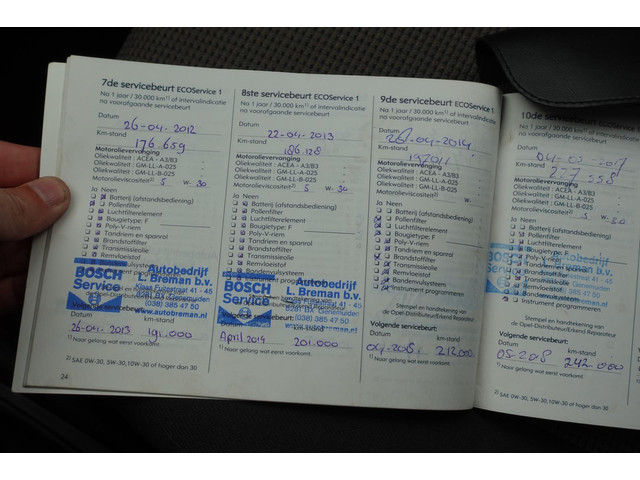 7de servicebeurt ECOService 1
Na 1 jaar / 30.000 km¹⁾ of intervalindicatie
na voorafgaande servicebeurt
Datum
26-04-2012
Km-stand
176.659
Motorolievervanging
Oliekwaliteit : ACEA - A3/B3
Oliekwaliteit : GM-LL-A-025
Oliekwaliteit : GM-LL-B-025
Motorolieviscositeit²⁾ 5 W- 30
Ja Neen
Batterij (afstandsbediening)
Pollenfilter
Luchtfilterelement
Bougietype: F
Poly-V-riem
Tandriem en spanrol
Brandstoffilter
Transmissieolie
Remvloeistof
Bandemvulsysteem
BOSCH
Service
Autobedrijf
L. Breman b.v.
(038) 385 47 50
www.autobreman.nl
Volgende servicebeurt:
Datum km-stand
26-04-2013 191.000
¹⁾ Naar gelang wat eerst voorkomt.
²⁾ SAE 0W-30, 5W-30,10W-30 of hoger dan 30
24
8ste servicebeurt ECOService 1
Na 1 jaar / 30.000 km¹⁾ of intervalindicatie
na voorafgaande servicebeurt
Datum
22-04-2013
Km-stand
186.128
Motorolievervanging
Oliekwaliteit : ACEA - A3/B3
Oliekwaliteit : GM-LL-A-025
Oliekwaliteit : GM-LL-B-025
Motorolieviscositeit²⁾ 5 W- 30
Ja Neen
Batterij (afstandsbediening)
Pollenfilter
Luchtfilterelement
Bougietype: F
Poly-V-riem
Tandriem en spanrol
Brandstoffilter
Transmissieolie
Remvloeistof
Bandemvulsysteem
BOSCH
Service
Autobedrijf
L. Breman b.v.
(038) 385 47 50
www.autobreman.nl
Volgende servicebeurt:
Datum km-stand
April 2014 201.000
¹⁾ Naar gelang wat eerst voorkomt.
9de servicebeurt ECOService 1
Na 1 jaar / 30.000 km¹⁾ of intervalindicatie
na voorafgaande servicebeurt
Datum
-04-2014
Km-stand
Motorolievervanging
Oliekwaliteit : ACEA - A3/B3
Oliekwaliteit : GM-LL-A-025
Oliekwaliteit : GM-LL-B-025
Motorolieviscositeit²⁾ W-
Ja Neen
Batterij (afstandsbediening)
Pollenfilter
Luchtfilterelement
Bougietype: F
Poly-V-riem
Tandriem en spanrol
Brandstoffilter
Transmissieolie
Remvloeistof
Bandemvulsysteem
Instrument programmeren
Stempel en handtekening van
de Opel-Distributeur/Erkend Reparateur
Volgende servicebeurt:
Datum km-stand
212.000
¹⁾ Naar gelang wat eerst voorkomt.
10de servicebeurt
Na 1 jaar / 30.000 km
na voorafgaande servicebeurt
Datum
Km-stand
227.558
Motorolievervanging
Oliekwaliteit : ACEA - A3/B3
Oliekwaliteit : GM-LL-A-025
Oliekwaliteit : GM-LL-B-025
Motorolieviscositeit²⁾ 5 W- 30
Ja Neen
Batterij (afstandsbediening)
Pollenfilter
Luchtfilterelement
Autobedrijf
L. Breman b.v.
Stempel en handtekening van
de Opel-Distributeur/Erkend Reparateur
Volgende servicebeurt:
Datum km-stand
242.000
¹⁾ Naar gelang wat eerst voorkomt.
²⁾ SAE 0W-30, 5W-30,10W-30 of hoger dan 30